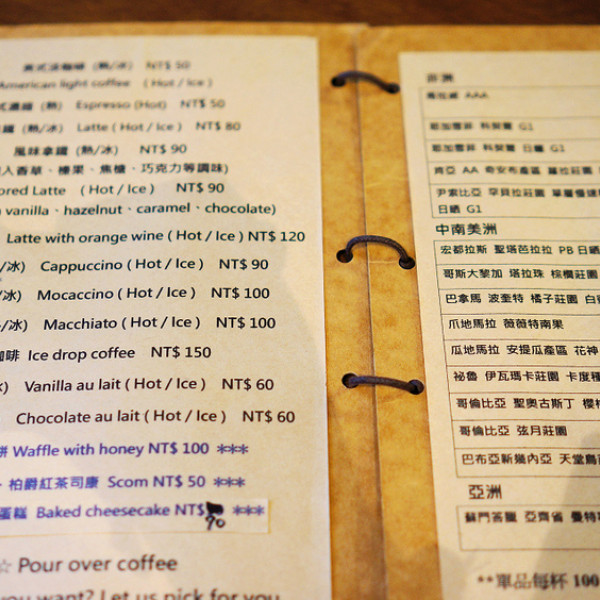 美式淡咖啡 (熱/冰) NT$ 50
American light coffee ( Hot / Ice )
式濃縮 (熱) Espresso (Hot) NT$ 50
鐵 (熱/冰) Latte ( Hot / Ice ) NT$ 80
風味拿鐵 (熱/冰) NT$ 90
入香草、榛果、焦糖、巧克力等調味)
ored Latte ( Hot / Ice ) NT$ 90
vanilla、hazelnut、caramel、chocolate)
Latte with orange wine ( Hot / Ice ) NT$ 120
/冰) Cappuccino ( Hot / Ice ) NT$ 90
/冰) Mocaccino ( Hot / Ice ) NT$ 100
/冰) Macchiato ( Hot / Ice ) NT$ 100
咖啡 Ice drop coffee NT$ 150
) Vanilla au lait ( Hot / Ice ) NT$ 60
Chocolate au lait ( Hot / Ice ) NT$ 60
餅 Waffle with honey NT$ 100 ***
、柏爵紅茶司康 Scom NT$ 50 ***
蛋糕 Baked cheesecake NT$ 90 ***
☆ Pour over coffee
you want? Let us pick for you
非洲
AAA
耶加雪菲 科契爾 G1
耶加雪菲 科契爾 日曬 G1
肯亞 AA 奇安布產區 莊園
衣索比亞 罕貝拉莊園 單層慢速
日曬 G1
中南美洲
宏都拉斯 聖塔芭拉拉 PB 日曬
哥斯大黎加 塔拉珠 棕櫚莊園
巴拿馬 波奎特 橘子莊園
瓜地馬拉 薇薇特南果
瓜地馬拉 安提瓜產區 花神
祕魯 伊瓦瑪卡莊園 卡度種
哥倫比亞 聖奧古斯丁
哥倫比亞 弦月莊園
巴布亞新幾內亞 天堂鳥
亞洲
蘇門答臘 亞齊省 曼特
**單品每杯 100